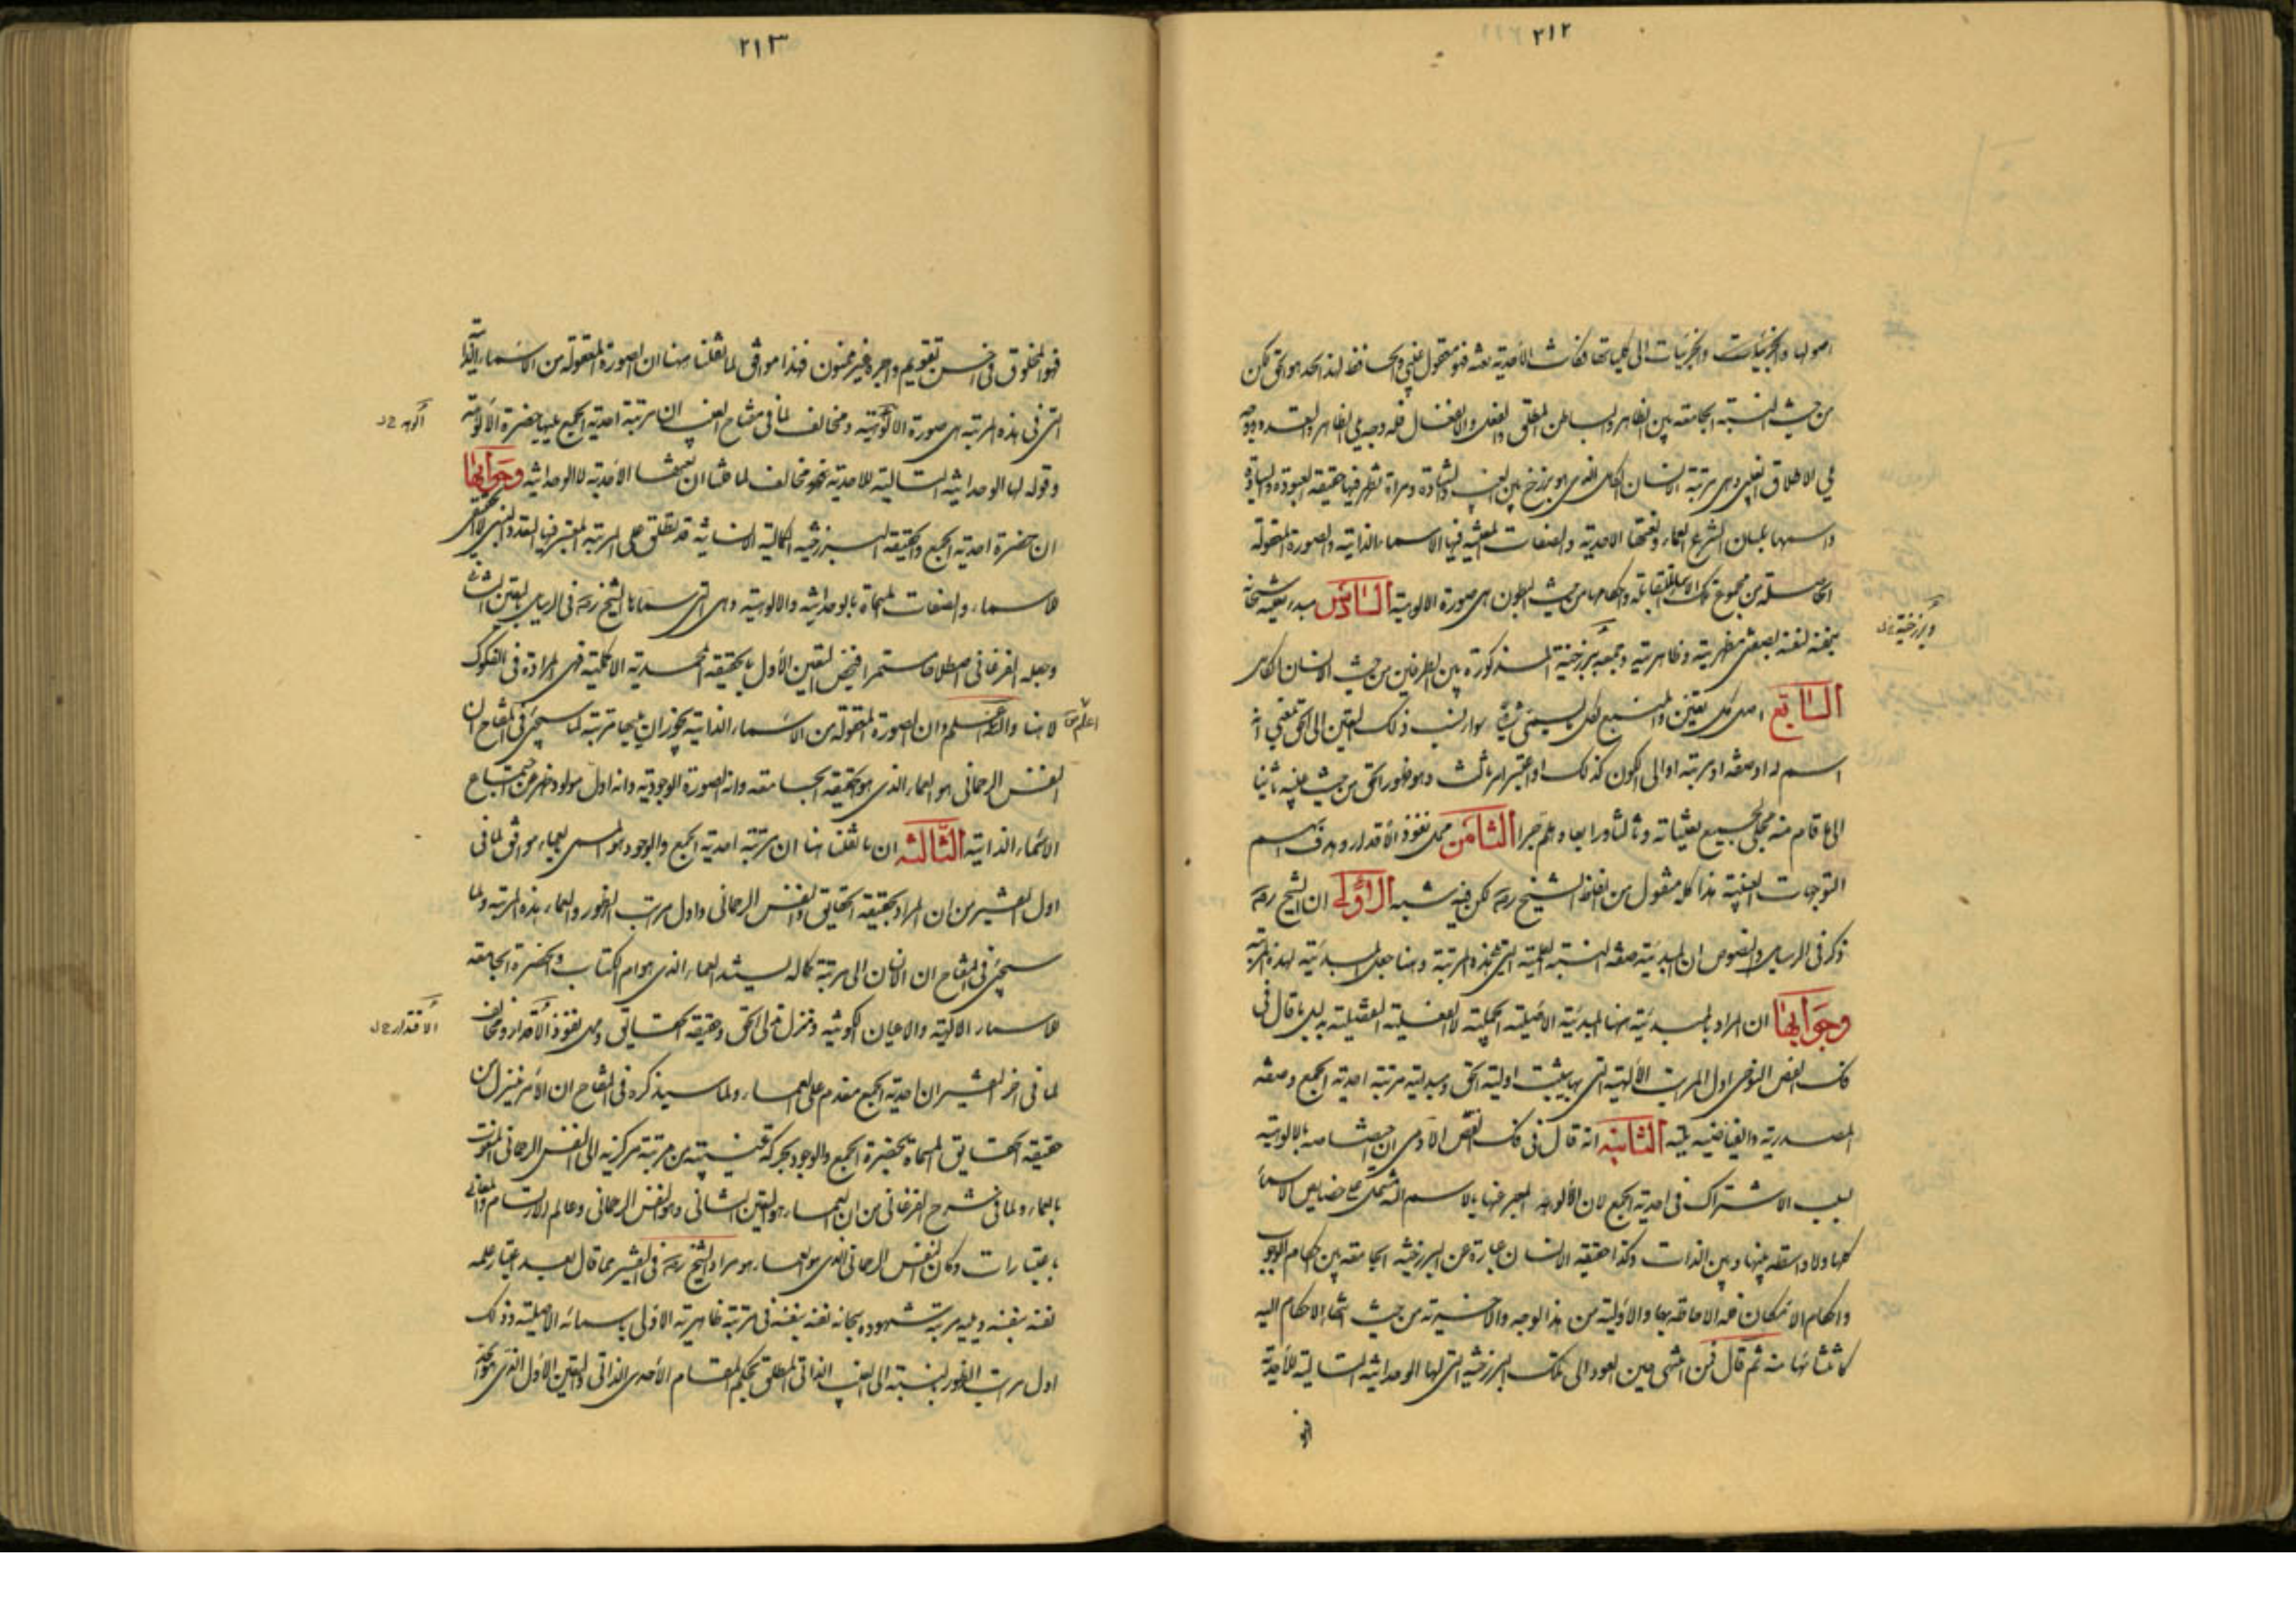 ٢١٢
اصولها والجزئيات والجزئيات الى كلياتها فكانت الأحدية نعته فهو معقول غيبي والحافظ لهذا الحد هو الحق لكن
من حيث النسبة الجامعة بين الظاهر والباطن المطلق والفعل والانفعال فله وجه يلي الظاهر والتعدد ووجه
يلي الاطلاق الغيبي وهى مرتبة الانسان الكامل الذى هو برزخ بين الغيب والشهادة ومرآة تظهر فيها حقيقة العبودة والسيادة
واسمها بلسان الشرع العماء ونعتها الاحدية والصفات المتعينة فيها الاسماء الذاتية والصورة المعقولة
الحاصلة من مجموع تلك الاسماء المتقابلة واحكامها من حيث البطون هى صورة الالوهية السادس مبدء تعينه سبحانه
بنفسه لنفسه بصفتي مظهريته وظاهريته وجمعه برزخية المذكورة بين الطرفين من حيث الانسان الكامل
وبرزخيته ل
السابع اصل كل تعين والمنبع لكل يسمى شيئا سواء نسب ذلك التعين الى الحق بمعنى انه
اسم له او صفة او مرتبة او الى الكون كذلك او اعتبر امر ثالث وهو ظهور الحق من حيث عينه ثانيا
الى ما قام منه مجلى لجميع تعيناته وثالثا ورابعا وهلم جرا الثامن محل نفوذ الأقدار وهدف اسهم
التوجهات الغيبية هذا كله منقول من لفظ الشيخ رضه لكن فيه شبه الاولى ان الشيخ رضه
ذكر فى الرسايل والنصوص ان المبدئية صفة النسبة العلمية التى تحت هذه المرتبة وهنا جعل المبدئية لهذه المرتبة
وجوابها ان المراد بالمبدئية هنا المبدئية الاصلية الجملية لا الفعلية التفصيلية بدليل ما قال فى
فك الفص النوحى اول المراتب الألهية التى بها يثبت اولية الحق ومبدئيته مرتبة احدية الجمع وصفة
المصدرية والفياضية يليه الثانية انه قال فى فك الفص الآدمى ان اختصاصه بالالوهية
لسبب الاشتراك فى احدية الجمع لان الألوهية المعبر عنها بالاسم الله تشتمل على خصايص الاسماء
كلها ولا واسطة بينها وبين الذات وكذا حقيقة الانسان عبارة عن البرزخية الجامعة بين احكام الوجوب
واحكام الامكان فله الاحاطة بها والأولية من هذا الوجه والاخيرية من حيث انتهاء الاحكام اليه
كانتشائها منه ثم قال فمن انتهى حين العود الى تلك البرزخية التى لها الوحدانية التالية للأحدية
فهو
٢١٣
فهو المخلوق فى احسن تقويم واجره غير ممنون فهذا موافق لما نقلنا هنا ان الصورة المعقولة من الأسماء الذاتية
التى فى هذه المرتبة هى صورة الالوهية ومخالف لما فى مفتاح الغيب ان مرتبة احدية الجمع عليها حضرة الألوهية
الوهة ل
وقوله لها الوحدانية التالية للاحدية نحو مخالف لما هنا ان نعتها الأحدية لا الوحدانية وجوابها
ان حضرة احدية الجمع والحقيقة البرزخية الكمالية الانسانية قد تطلق على المرتبة المعتبر فيها التعدد النسبى لا الحقيقى
للاسماء والصفات المسماة بالوحدانية والالوهية وهى التى سماها الشيخ رضه فى الرسايل بالتعين الثانى
وجعله الفرغانى اصطلاحا مستمرا فيخص التعين الأول بالحقيقة المحمدية الاكملية فهى المرادة فى الفكوك
لا هنا والله اعلم وان الصورة المعقولة من الأسماء الذاتية يجوز ان يليها مرتبة لما سيجئ فى المفتاح ان
النفس الرحمانى هو العماء الذى هو الحقيقة الجامعة وانه الصورة الوجودية وانه اول مولود ظهر عن اجتماع
الأسماء الذاتية الثالثة ان ما نقلنا هنا ان مرتبة احدية الجمع والوجود هو المسمى بعماء موافق لما فى
اول التفسير من ان المراد بحقيقة الحقايق والنفس الرحمانى واول مراتب الظهور والعماء هذه المرتبة ولما
سيجئ فى المفتاح ان الانسان الى مرتبة كماله يستند العماء الذى هو ام الكتاب والحضرة الجامعة
للاسماء الالهية والاعيان الكونية ومنزل تدلى الحق وحقيقة الحقايق ومحل نفوذ الأقدار ومخالف
الاقتدار ل
لما فى اخر التفسير ان احدية الجمع مقدم على العماء ولما سيذكره فى المفتاح ان الأمر ينزل من
حقيقة الحقايق المسماة بحضرة الجمع والوجود بحركة غيبية من مرتبة مركزية الى النفس الرحمانى المنعوت
بالعماء ولما فى شرح الفرغانى من ان العماء هو التعين الثانى وهو النفس الرحمانى وعالم الارتسام والمعانى
باعتبارات وكان النفس الرحمانى الذى هو العماء هو مراد الشيخ رضه فى التفسير مما قال بعد اعتبار علمه
نفسه بنفسه ويليه مرتبة شهوده سبحانه نفسه بنفسه فى مرتبة ظاهريته الاولى باسمائه الاصلية وذلك
اول مراتب الظهور بالنسبة الى الغيب الذاتى المطلق بحكم المقام الأحدى الذاتى والتعين الأول الذى هو الحد